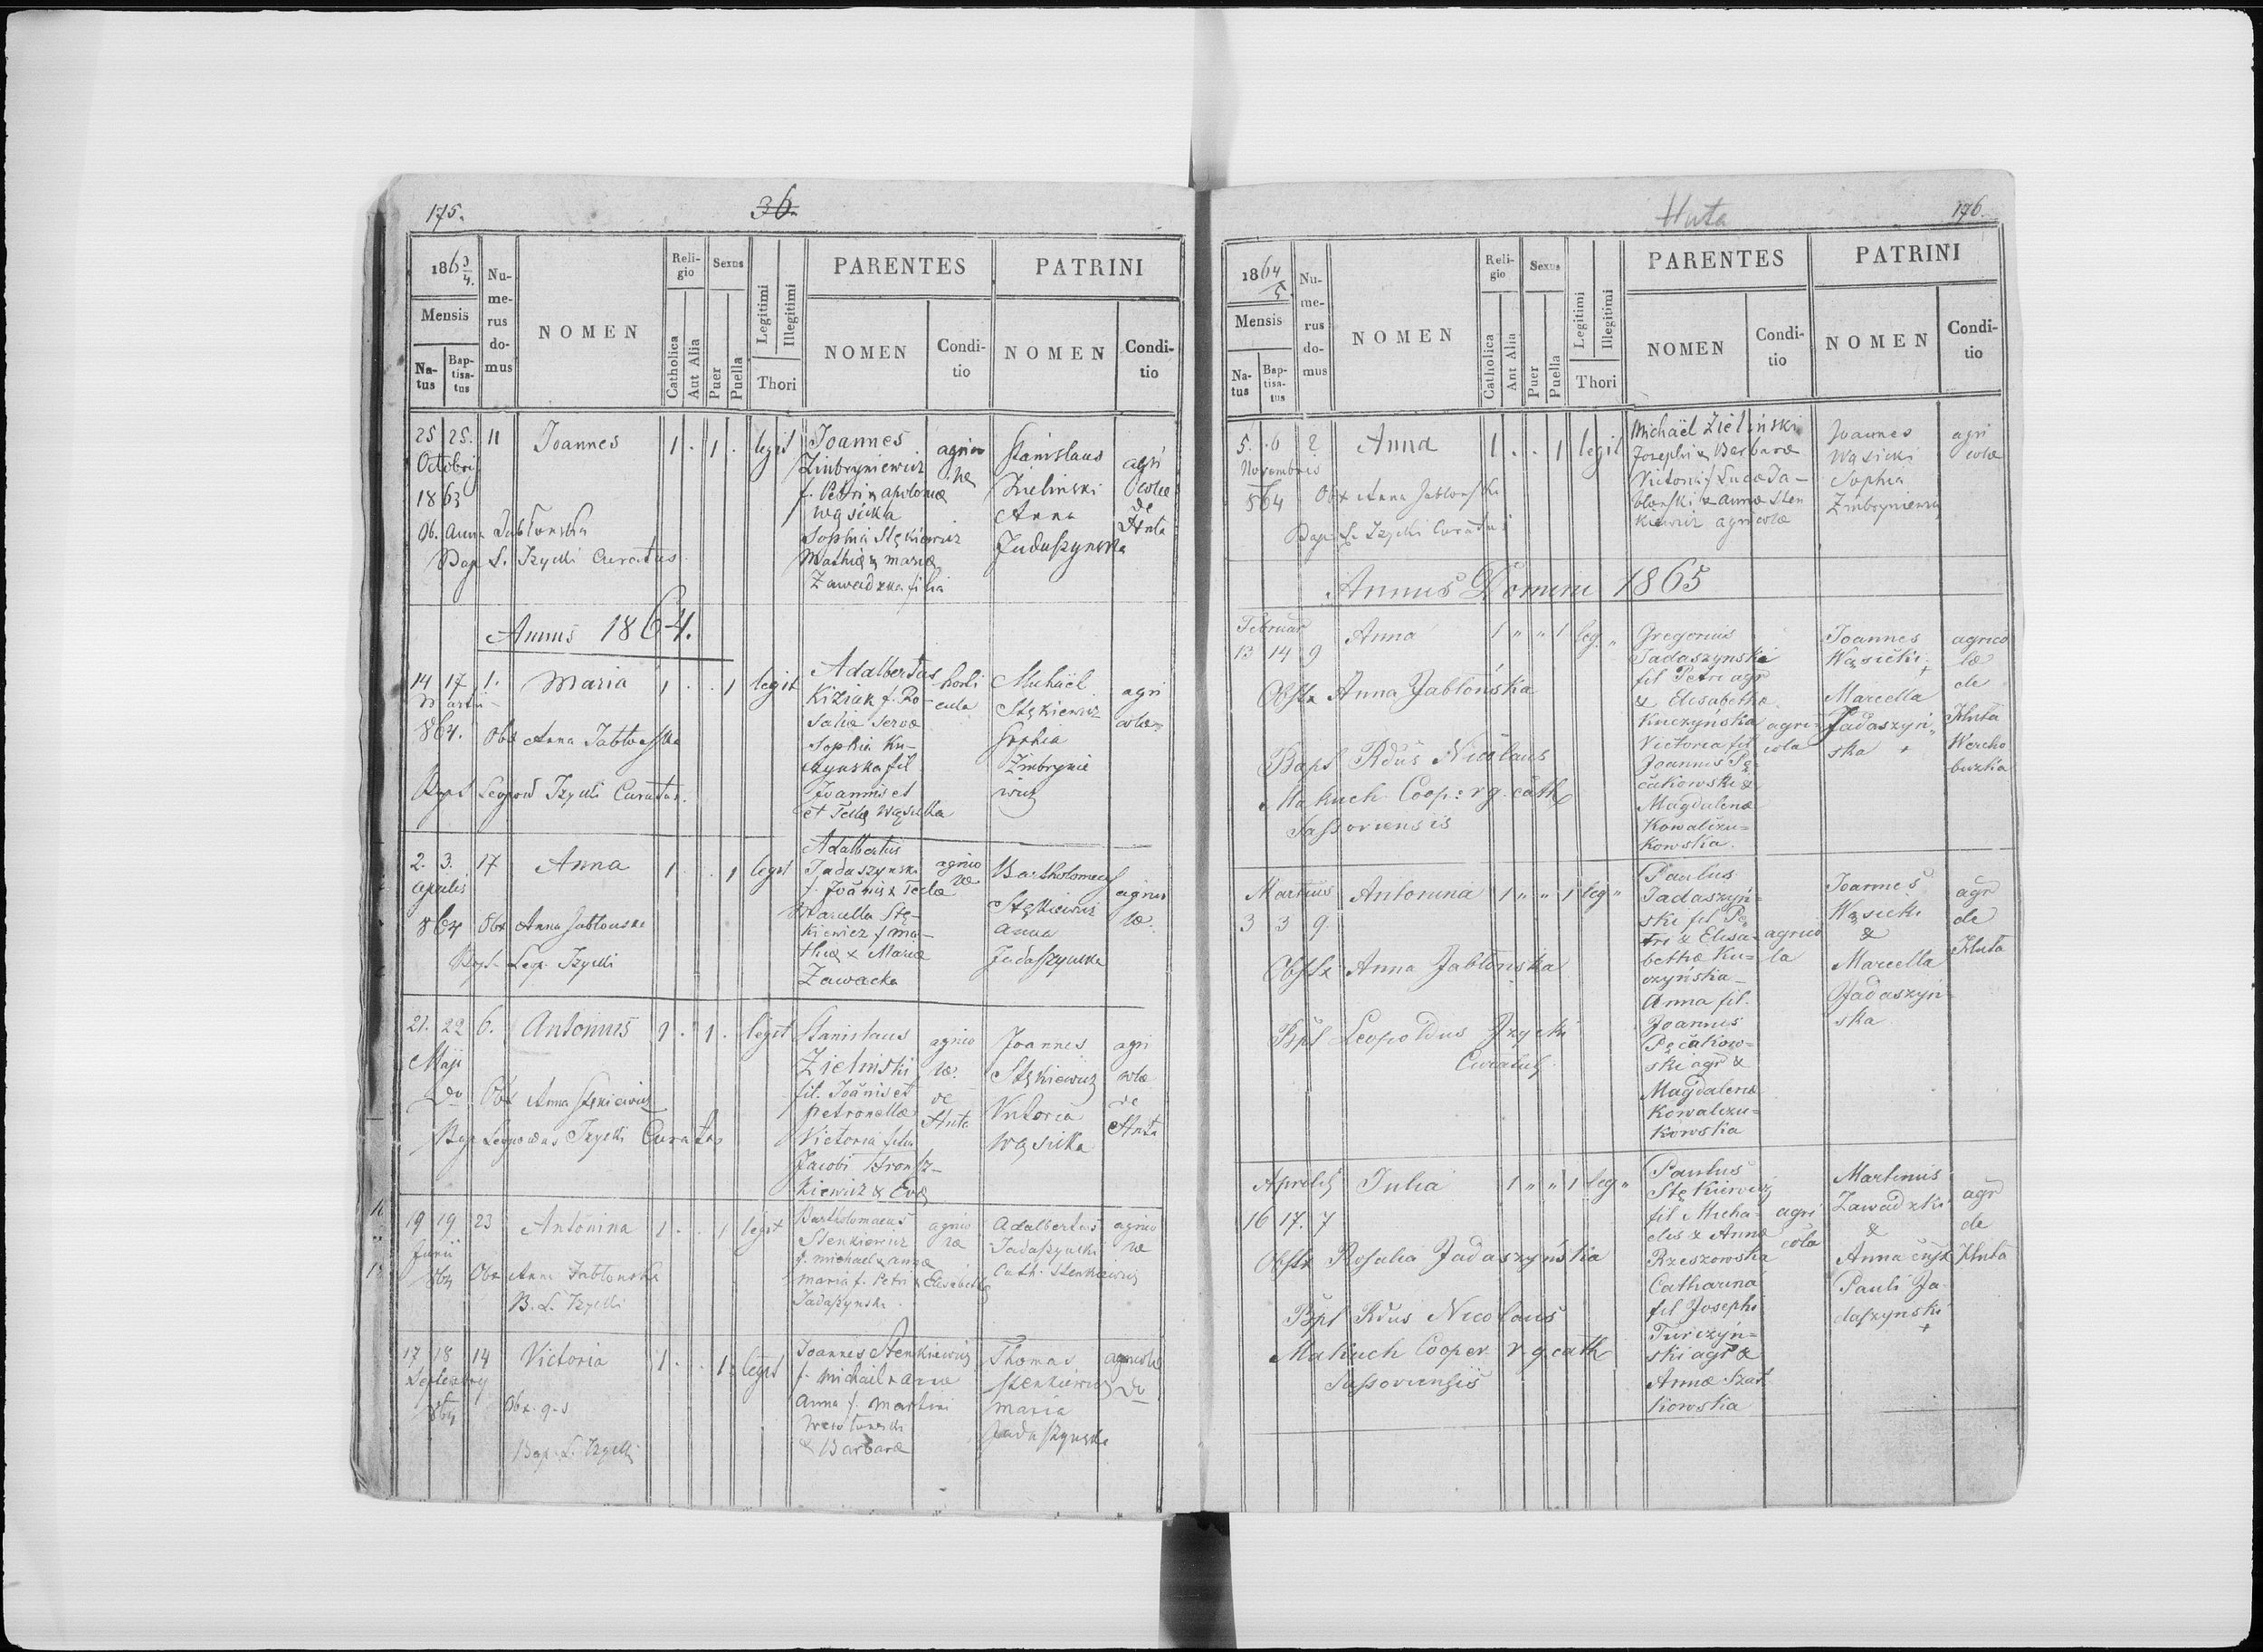 175.
36.
186 3/4.
Mensis
Na-
tus
Bap-
tisa-
tus
Nu-
me-
rus
do-
mus
NOMEN
Reli-
gio
Catholica
Aut Alia
Sexus
Puer
Puella
Legitimi
Illegitimi
Thori
PARENTES
NOMEN
Condi-
tio
PATRINI
NOMEN
Condi-
tio
25 25. 11 Joannes 1 . 1 . legit
Octobris
1863
Ob. Anna Jabłonska
Bap L. Izycki Curatus
Joannes
Zimbryniewicz
f. Petri & apoloniæ
Wąsicka
Sophia Stękiewicz
Mathiæ & mariæ
Zawadzka filia
agrico
læ
Stanislaus
Zielinski
Anna
Jadaszynska
agri
colæ
de
Huta
Annus 1864.
14 17 1. Maria 1 . . 1 legit
Martii
864. Obs Anna Jabłonska
Bapt Leopold Izycki Curatus.
Adalbertus
Kiziak f. Ro-
saliæ servæ
Sophia Ku-
czynska fil
Joannis et
et Teclę Wąsicka
Michäel
Stękiewicz
Sophia
Zimbrynie
wicz
agri
colæ
2. 3. 17 Anna 1 . . 1 legit
Aprilis
864 Obs Anna Jablonska
Bapt. Leop. Izycki
Adalbertus
Jadaszynski
f. Joãnis & Teclæ
Marcella Stę-
kiewicz f ma-
thiæ & Mariæ
Zawacka
agrico
læ
Bartholomeus
Stękiewicz
anna
Jadaszynska
agrico
læ.
21. 22 6. Antonius 1 . 1 . legit
Maji
Do Obs Anna Stękiewicz
Bap Leopoldus Izycki Curatus
Stanislaus
Zielinski
fil. Joãnis et
petronellæ
Victoria filia
Jacobi
kiewicz & Evę
agrico
læ.
de
Huta
Joannes
Stękiewicz
Victoria
Wąsicka
agri
colæ
de
Huta
19 19 23 Antonina 1 . . 1 legit
Junii
864 Obs Anna Jabłonska
B. L. Izycki
Bartholomaeus
Stenkiewicz
f. michael & annæ
maria f. Petri & Elisabethę
Jadaszynski
agrico
læ
Adalbertus
Jadaszynski
Cath. Stenkiewicz
agrico
læ
17 18 14 Victoria 1 . . 1 legit
Septembris
864 Obs. q. s
Bap. L. Izycki
Joannes Stenkiewicz
f. michael & annæ
Anna f. martini
& Barbaræ
Thomas
Stenkiewicz
maria
Jadaszynska
agricolæ
Do
Huta
176.
1864/5.
Mensis
Na-
tus
Bap-
tisa-
tus
Nu-
me-
rus
do-
mus
NOMEN
Reli-
gio
Catholica
Aut Alia
Sexus
Puer
Puella
Legitimi
Illegitimi
Thori
PARENTES
NOMEN
Condi-
tio
PATRINI
NOMEN
Condi-
tio
5. 6 2 Anna 1 . . 1 legit
Novembris
864 Obs Anna Jablonska
Bap L. Izycki Curatus
Michäel Zieliński
Josephi & Barbaræ
Victoria f Lucæ Ja-
błonski & annæ Sten
kiewicz agricolæ
Joannes
Wąsicki
Sophia
Zimbryniewicz
agri
colæ
Annus Domini 1865
Februar
13 14 9 Anna 1 " " 1 leg. "
Obstx Anna Jabłońska
Bapt Rdus Nicolaus
Makuch Coop: r g. cath
Sassoviensis
Gregorius
Jadaszynski
fil Petri agr
& Elisabethæ
Kuczyńska
Victoria fil
Joannis Pę-
cakowski &
Magdalenæ
Kowalczu=
kowska.
agri=
cola
Joannes
Wąsicki +
Marcella
Jadaszyń
ska +
agrico
læ
de
Huta
Wercho
buzka
Martius Antonina 1 " " 1 leg "
3 3 9.
Obstx Anna Jabłońska
Bpt Leopoldus Izycki
Curatus
Paulus
Jadaszyń=
ski fil Pe
tri & Elisa=
bethæ Ku=
czyńska
Anna fil.
Joannis
Pęcakow=
ski agr &
Magdalenæ
Kowalczu=
kowska
agrico
la
Joannes
Wąsicki
&
Marcella
Jadaszyń
ska
agr
de
Huta
Aprilis Julia 1 " " 1 leg "
16 17. 7
Obstx Rosalia Jadaszyńska
Bpt Rdus Nicolaus
Makuch Cooper r. g. cath
Sassoviensis
Paulus
Stękiewicz
fil Micha=
elis & Annæ
Rzeszowska
Catharina
fil Josephi
Turczyń=
ski agr &
Annæ Szat
kowska
agri
cola
Martinus
Zawadzki
&
Anna
Pauli Ja-
daszynski
+
agr
de
Huta